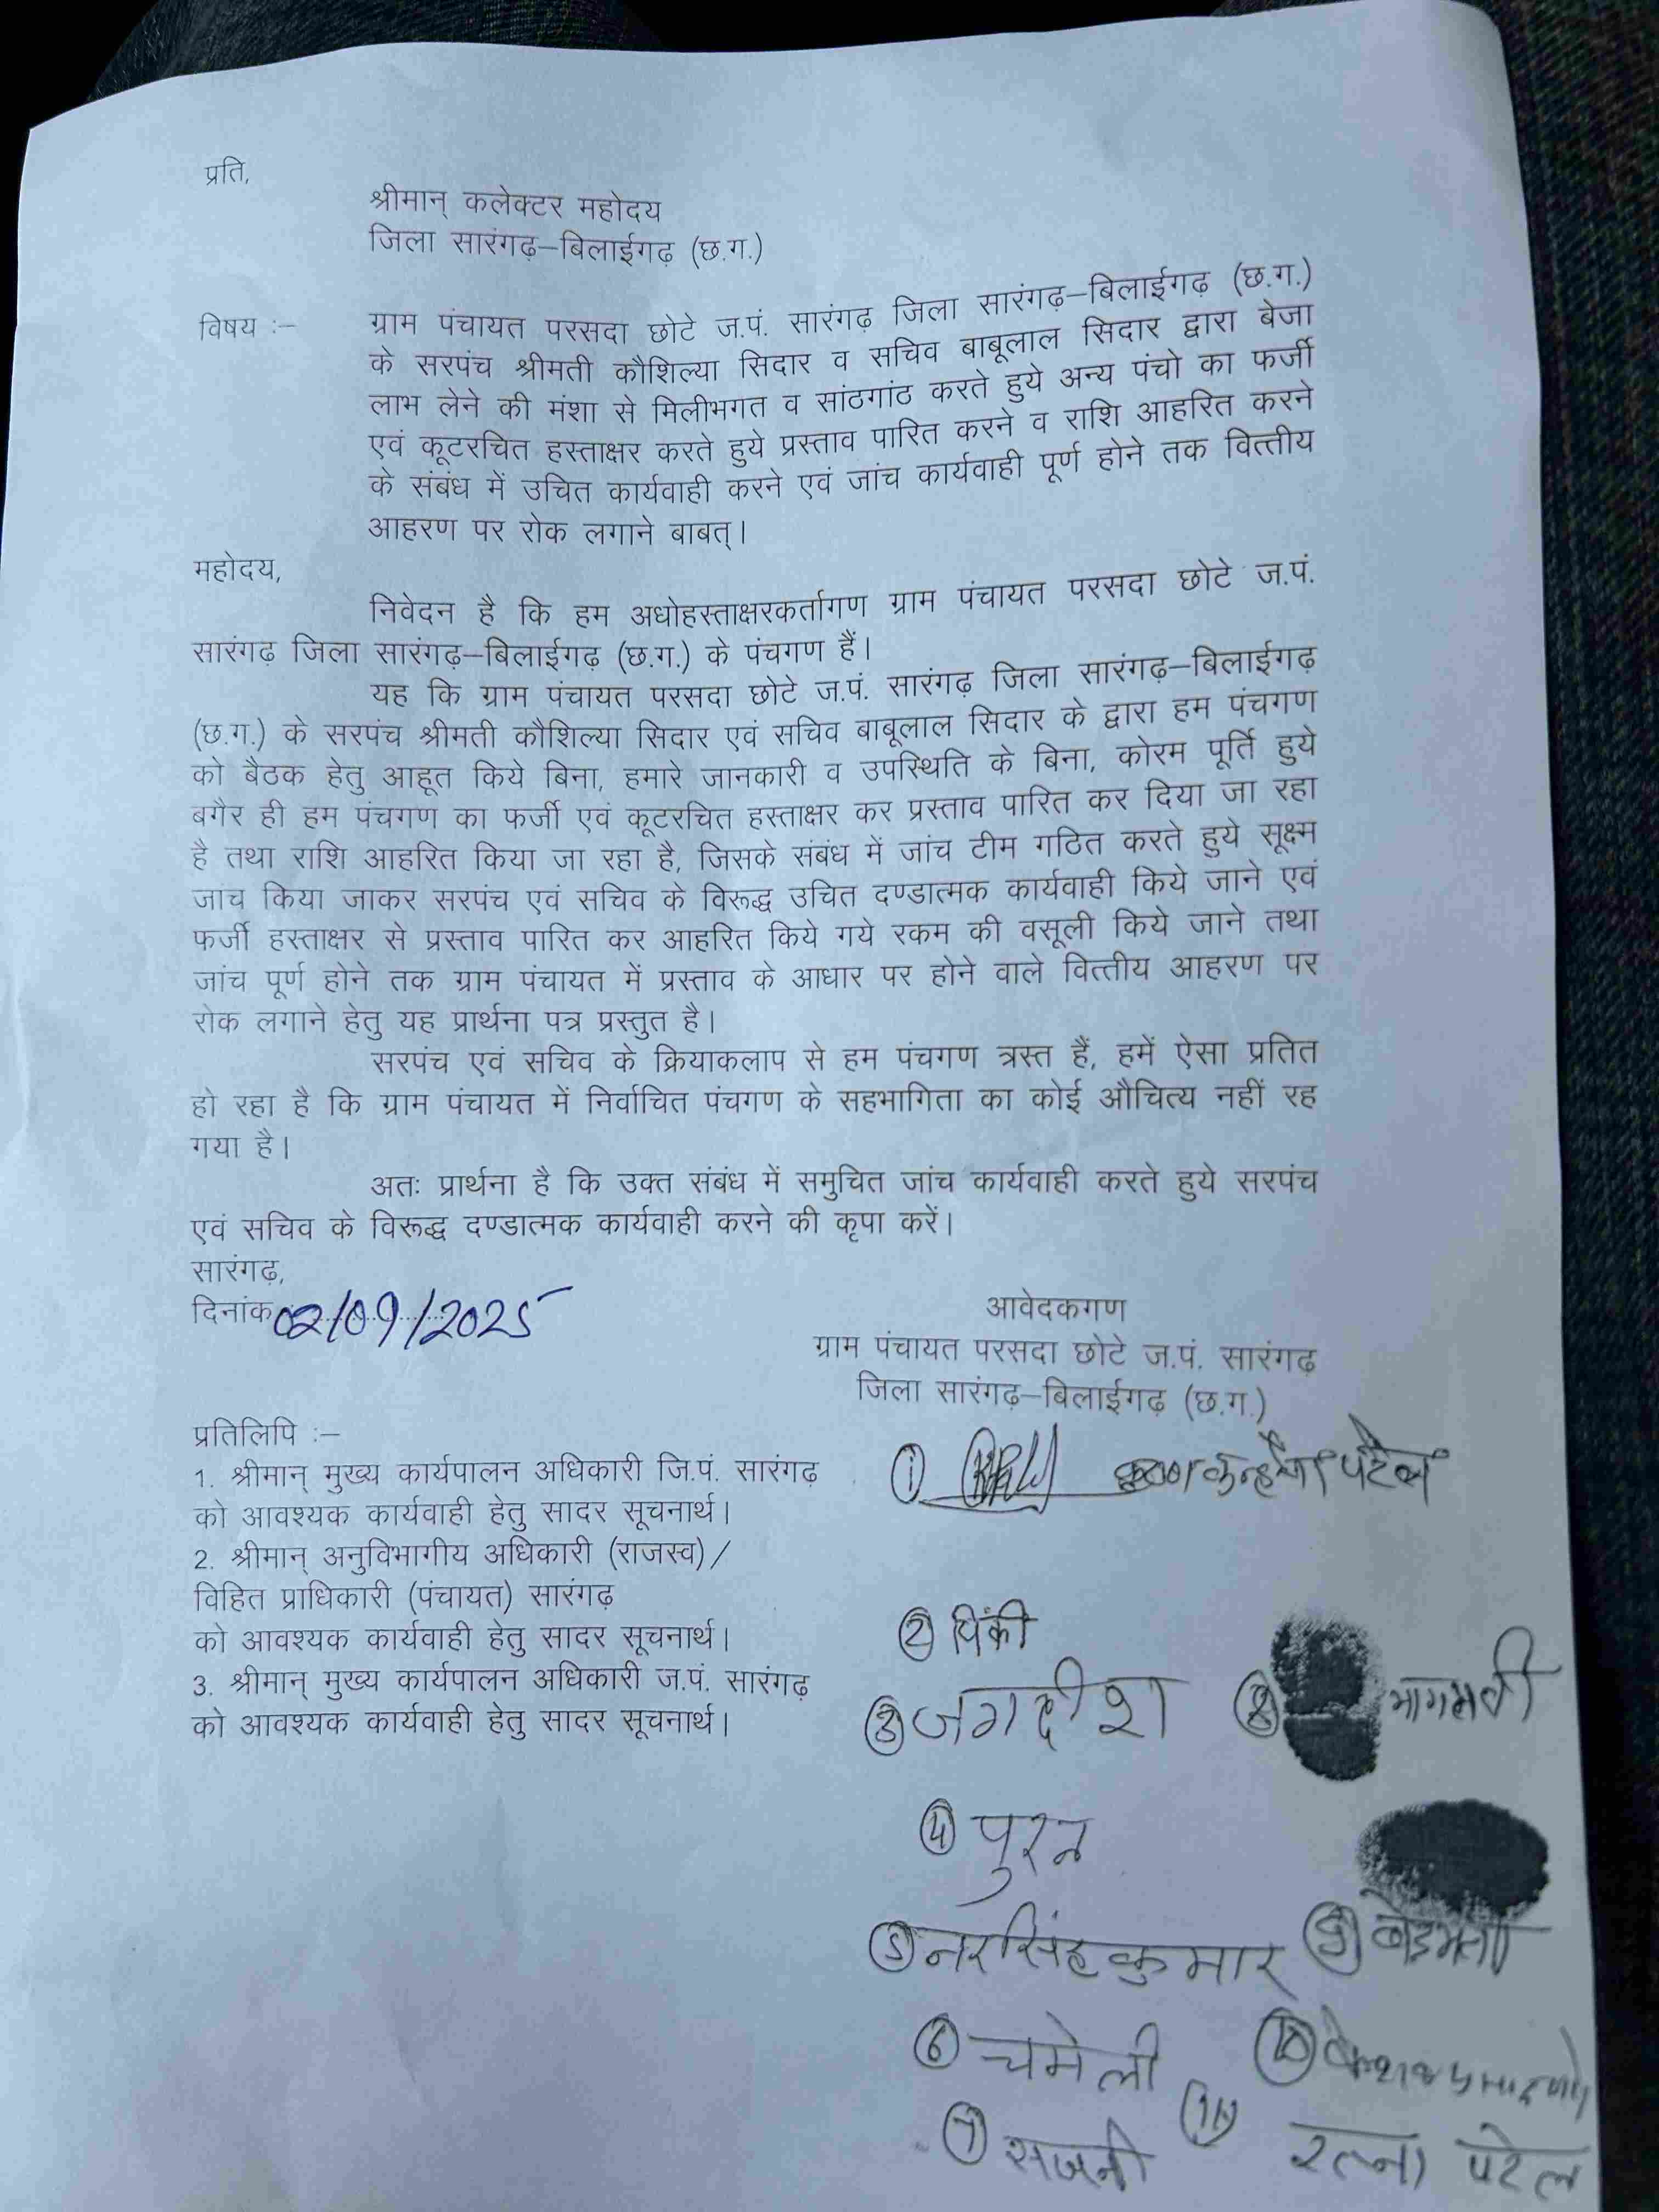 प्रति,
श्रीमान् कलेक्टर महोदय
जिला सारंगढ़–बिलाईगढ़ (छ.ग.)
विषय :– ग्राम पंचायत परसदा छोटे ज.पं. सारंगढ़ जिला सारंगढ़–बिलाईगढ़ (छ.ग.)
के सरपंच श्रीमती कौशिल्या सिदार व सचिव बाबूलाल सिदार द्वारा बेजा
लाभ लेने की मंशा से मिलीभगत व सांठगांठ करते हुये अन्य पंचो का फर्जी
एवं कूटरचित हस्ताक्षर करते हुये प्रस्ताव पारित करने व राशि आहरित करने
के संबंध में उचित कार्यवाही करने एवं जांच कार्यवाही पूर्ण होने तक वित्तीय
आहरण पर रोक लगाने बाबत्।
महोदय,
निवेदन है कि हम अधोहस्ताक्षरकर्तागण ग्राम पंचायत परसदा छोटे ज.पं.
सारंगढ़ जिला सारंगढ़–बिलाईगढ़ (छ.ग.) के पंचगण हैं।
यह कि ग्राम पंचायत परसदा छोटे ज.पं. सारंगढ़ जिला सारंगढ़–बिलाईगढ़
(छ.ग.) के सरपंच श्रीमती कौशिल्या सिदार एवं सचिव बाबूलाल सिदार के द्वारा हम पंचगण
को बैठक हेतु आहूत किये बिना, हमारे जानकारी व उपस्थिति के बिना, कोरम पूर्ति हुये
बगैर ही हम पंचगण का फर्जी एवं कूटरचित हस्ताक्षर कर प्रस्ताव पारित कर दिया जा रहा
है तथा राशि आहरित किया जा रहा है, जिसके संबंध में जांच टीम गठित करते हुये सूक्ष्म
जांच किया जाकर सरपंच एवं सचिव के विरूद्ध उचित दण्डात्मक कार्यवाही किये जाने एवं
फर्जी हस्ताक्षर से प्रस्ताव पारित कर आहरित किये गये रकम की वसूली किये जाने तथा
जांच पूर्ण होने तक ग्राम पंचायत में प्रस्ताव के आधार पर होने वाले वित्तीय आहरण पर
रोक लगाने हेतु यह प्रार्थना पत्र प्रस्तुत है।
सरपंच एवं सचिव के क्रियाकलाप से हम पंचगण त्रस्त हैं, हमें ऐसा प्रतित
हो रहा है कि ग्राम पंचायत में निर्वाचित पंचगण के सहभागिता का कोई औचित्य नहीं रह
गया है।
अतः प्रार्थना है कि उक्त संबंध में समुचित जांच कार्यवाही करते हुये सरपंच
एवं सचिव के विरूद्ध दण्डात्मक कार्यवाही करने की कृपा करें।
सारंगढ़,
दिनांक 02/09/2025
आवेदकगण
ग्राम पंचायत परसदा छोटे ज.पं. सारंगढ़
जिला सारंगढ़–बिलाईगढ़ (छ.ग.)
प्रतिलिपि :–
1. श्रीमान् मुख्य कार्यपालन अधिकारी जि.पं. सारंगढ़
को आवश्यक कार्यवाही हेतु सादर सूचनार्थ।
2. श्रीमान् अनुविभागीय अधिकारी (राजस्व)/
विहित प्राधिकारी (पंचायत) सारंगढ़
को आवश्यक कार्यवाही हेतु सादर सूचनार्थ।
3. श्रीमान् मुख्य कार्यपालन अधिकारी ज.पं. सारंगढ़
को आवश्यक कार्यवाही हेतु सादर सूचनार्थ।
1 कन्हैया पटेल
2 पिंकी
3 जगदीश
8
4 पुरन
5 नरसिंह कुमार
9
6 चमेली
10
7 सजनी
11 रत्ना पटेल